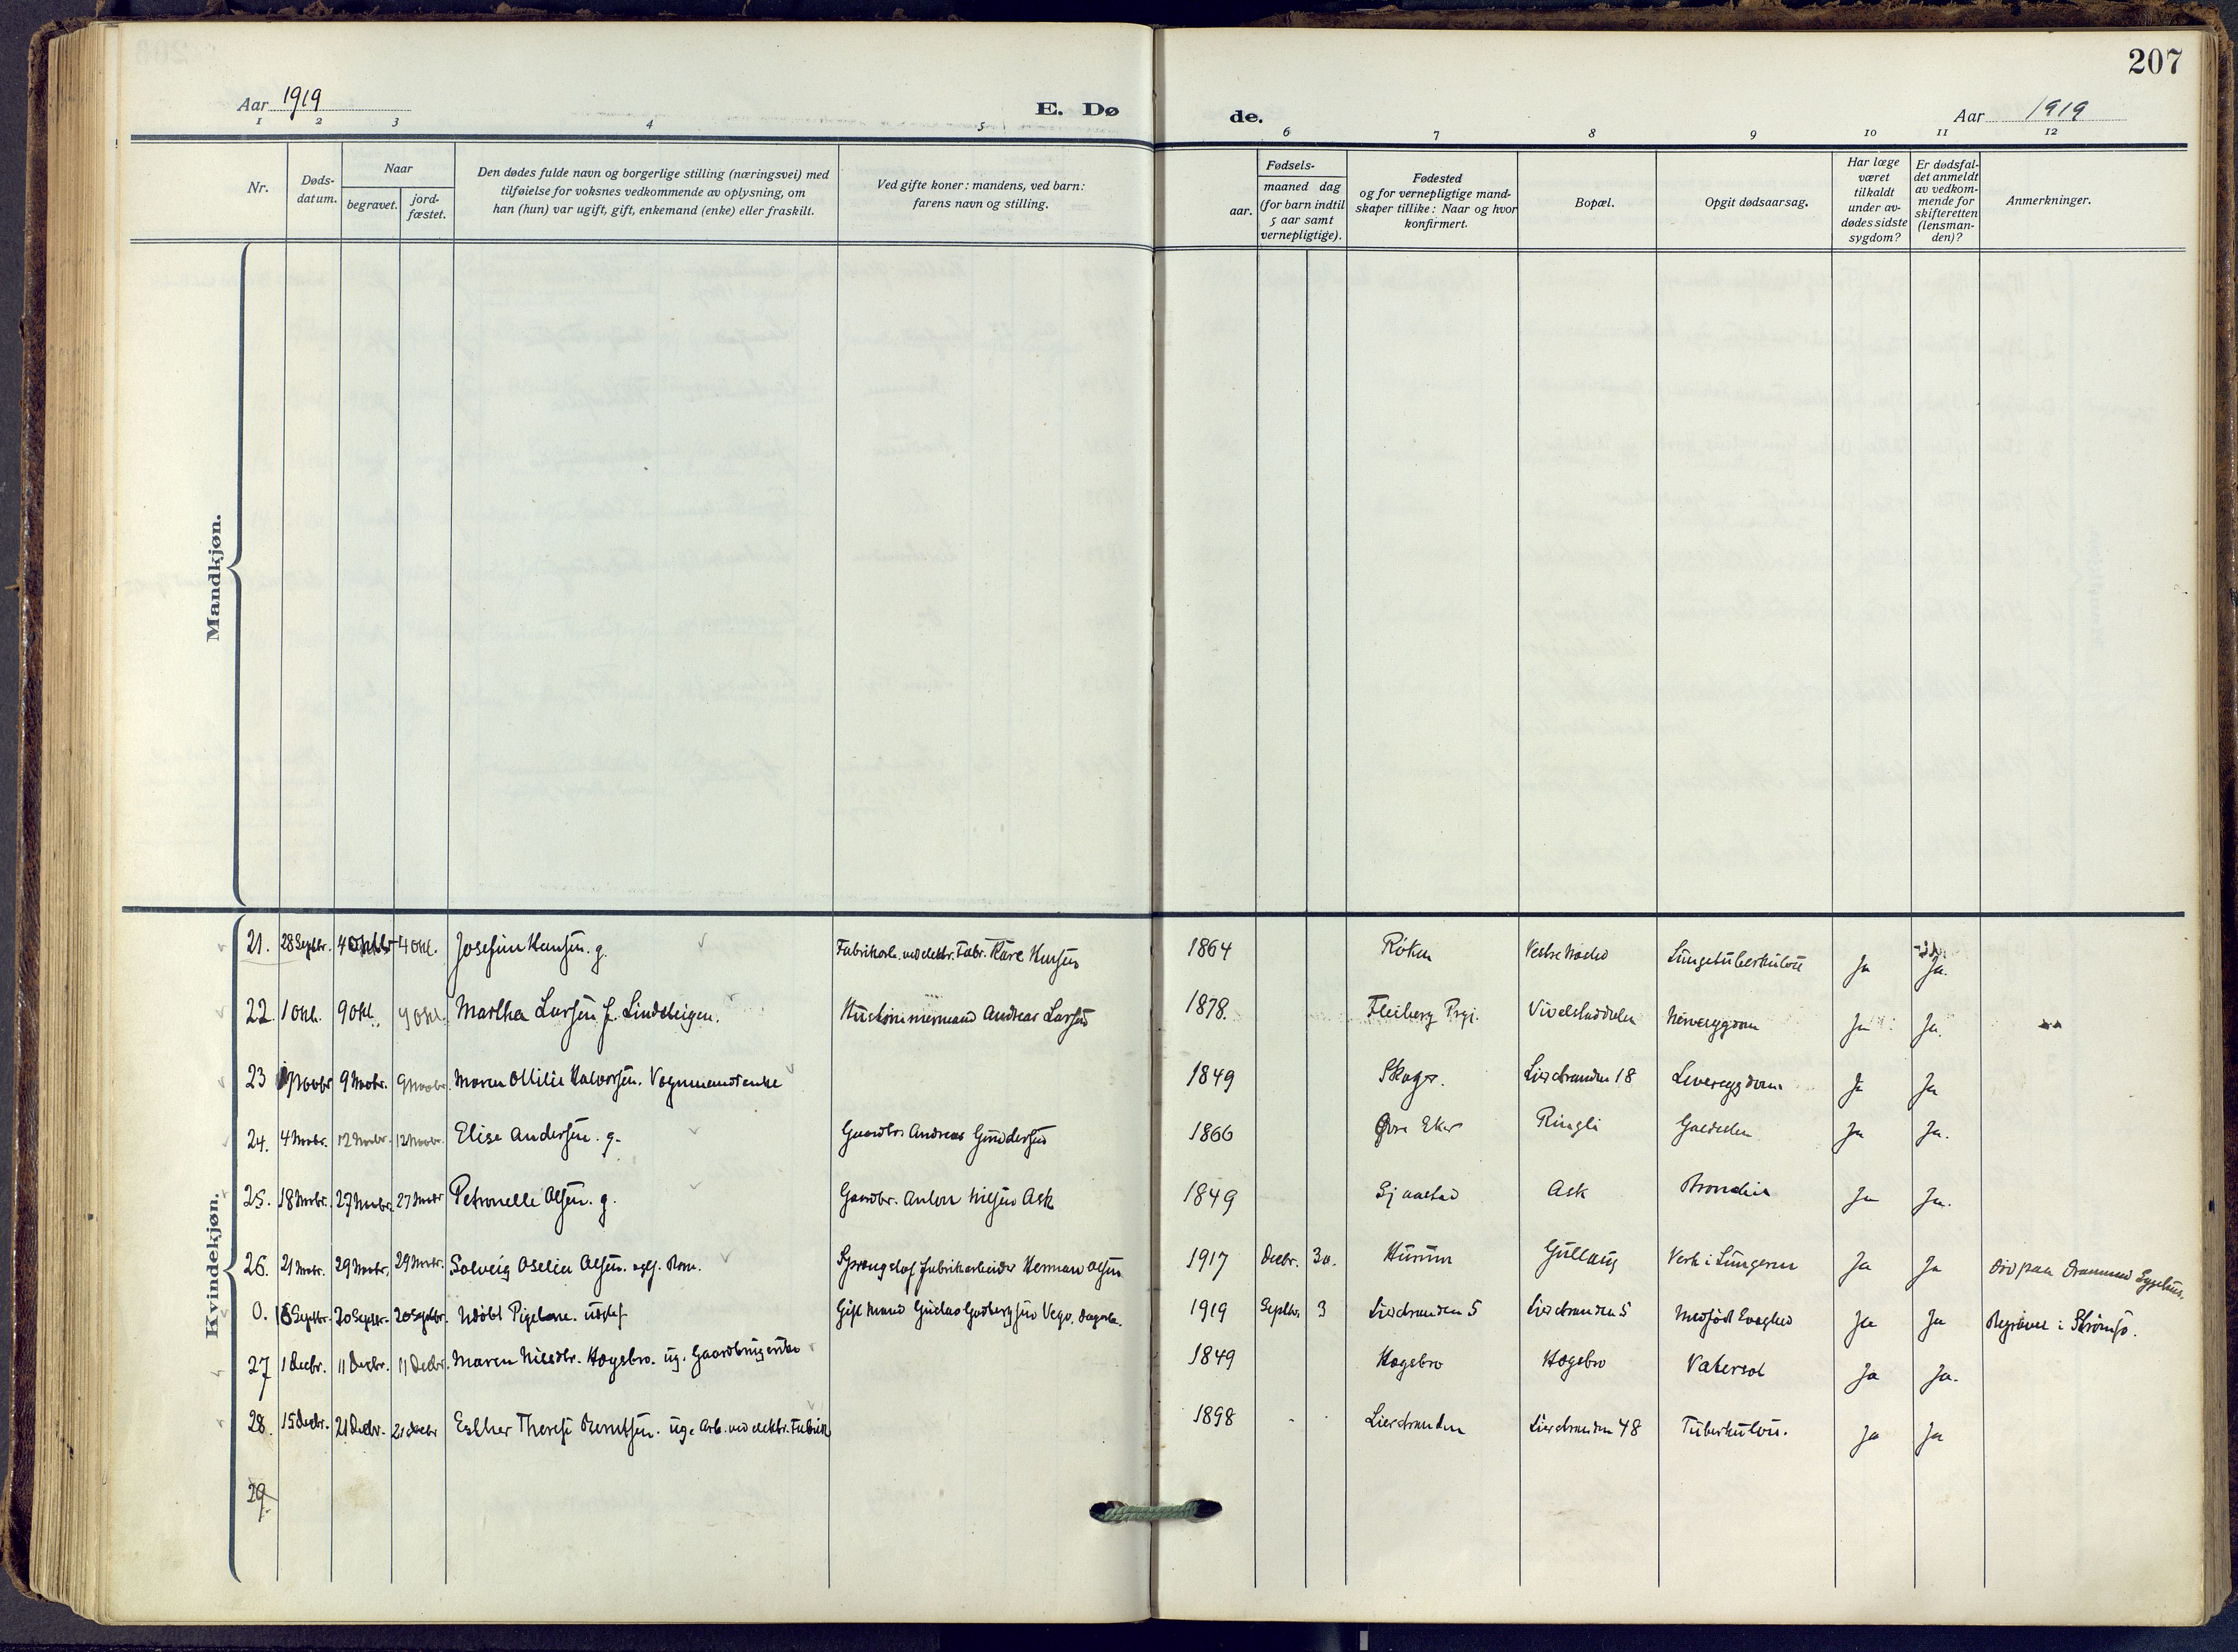 207
Aar 1919
E. Dø
de.
Aar 1919
1 2 3 4 5 6 7 8 9 10 11 12
Nr.
Døds-
datum.
Naar
begravet.
jord-
fæstet.
Den dødes fulde navn og borgerlige stilling (næringsvei) med
tilføielse for voksnes vedkommende av oplysning, om
han (hun) var ugift, gift, enkemand (enke) eller fraskilt.
Ved gifte koner: mandens, ved barn:
farens navn og stilling.
aar.
Fødsels-
maaned dag
(for barn indtil
5 aar samt
vernepligtige).
Fødested
og for vernepligtige mand-
skaper tillike: Naar og hvor
konfirmert.
Bopæl.
Opgit dødsaarsag.
Har læge
været
tilkaldt
under av-
dødes sidste
sygdom?
Er dødsfal-
det anmeldt
av vedkom-
mende for
skifteretten
(lensman-
den)?
Anmerkninger.
Mandkjøn.
Kvindekjøn.
21. 28 Septbr. 4 Oktbr 4 Okt. Josefine Hansen. g. Fabrikarb. ved elektr. Fabr. Kåre Hansen 1864 Röken Lungetuberkulose Ja Ja.
22. 1 Okt. 9 Okt. 9 Okt. Martha Larsen f. Lindsteigen. Andreas Larsen 1878. Prgj. Nervesygdom Ja Ja.
23 Novbr 9 Novbr. 9 Novbr. Maren Otilie Halvorsen. Vognmandsenke 1849 Skoger. Lierstranden 18 Leversygdom Ja Ja
24. 4 Novbr. 12 Novbr. 12 Novbr. Elise Andersen. g. Gaardbr. Andreas Gundersen 1866 Øvre Eker Ringli Ja Ja.
25. 18 Novbr. 27 Novbr. 27 Novbr Petronelle Olsen. g. Gaardbr. Anton Nilsen Ask 1849 Sjaastad Ask Bronchit Ja Ja.
26. 21 Novbr. 29 Novbr. 29 Novbr. Solveig Aselia Olsen. Sprengstof fabrikarbeider Herman Olsen 1917 Decbr. 30. Hurum Gullaug Verk i Lungerne Ja Ja Död paa Drammens Sygehus.
0. 18 Septbr. 20 Septbr. 20 Septbr. Udöbt Pigebarn. Gift Mand Gustav 1919 Septbr. 3 Lierstranden 5 Lierstranden 5 Medfödt Svaghed Ja Ja Begravet i Strömsö.
27 1 Decbr. 11 Decbr. 11 Decbr. Maren Nilsdtr. Hagebro. ug. 1849 Hagebro Hagebro Vatersot Ja Ja.
28. 15 Decbr. 21 Decbr. 21 Decbr Esther Therese Berntsen. ug. Arb. ved elektr. Fabrik 1898 Lierstranden Lierstranden 48 Tuberkulose. Ja Ja
29.